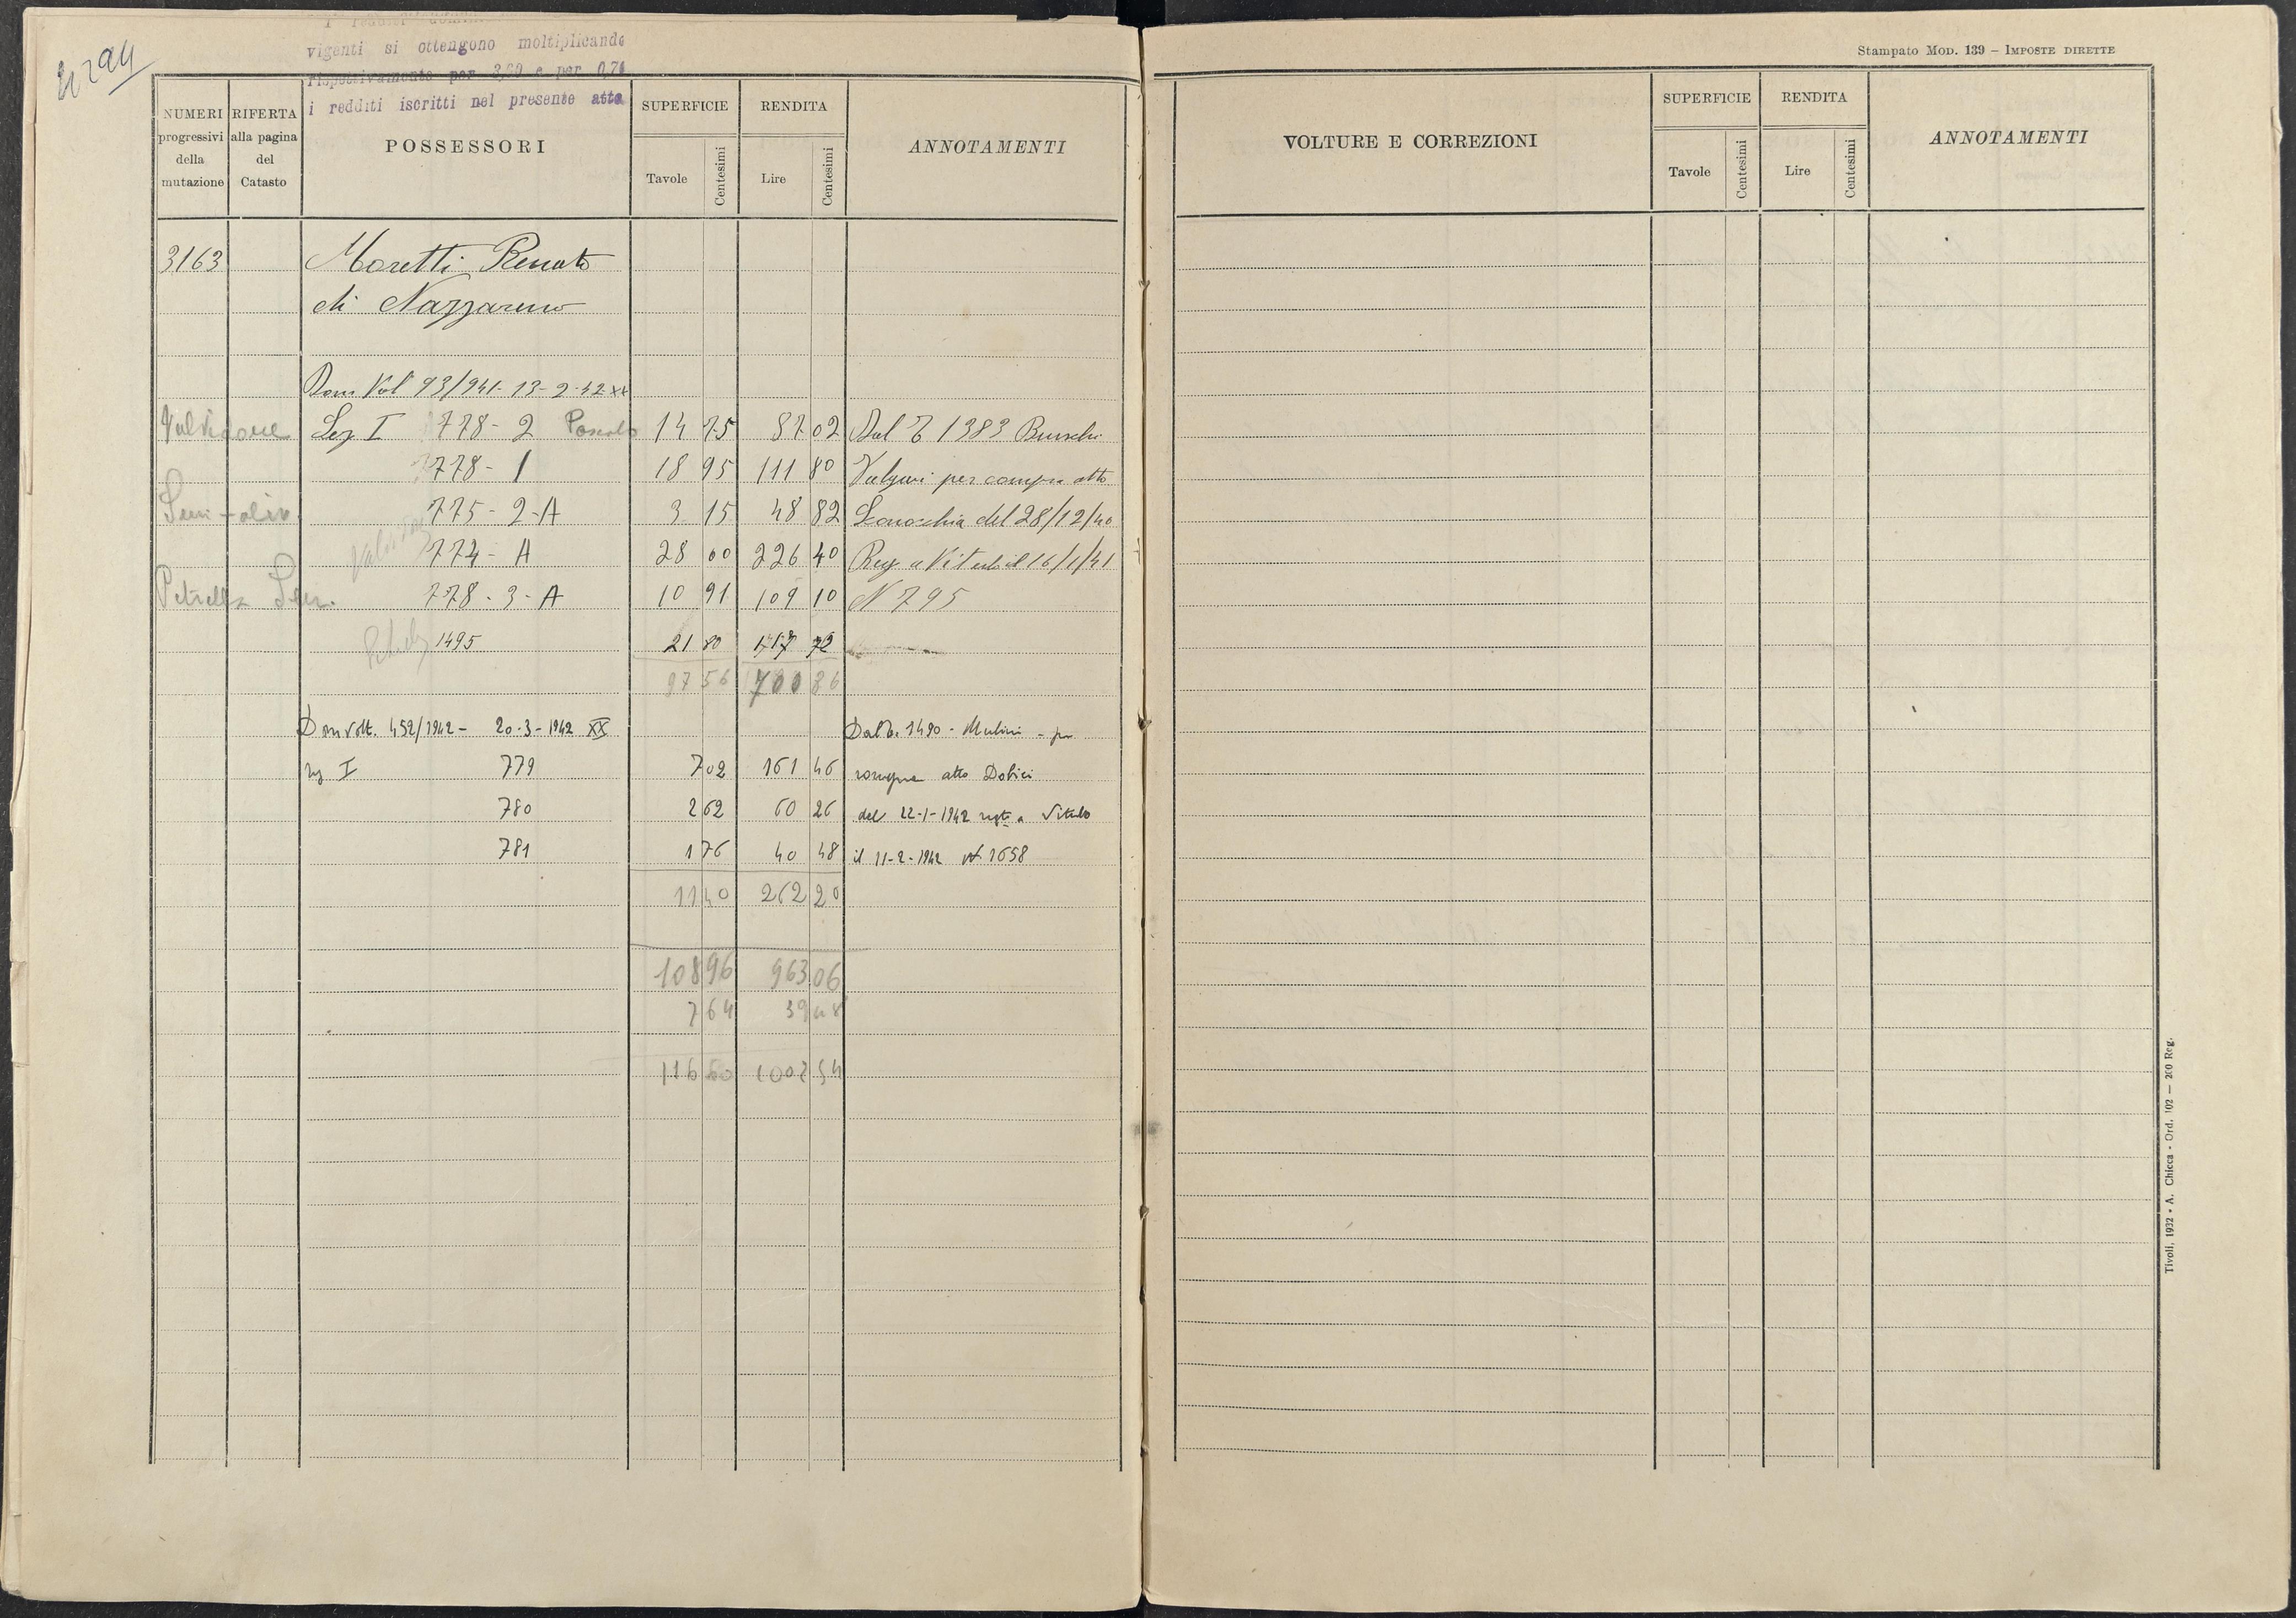 4294
vigenti si ottengono moltiplicando
rispettivamente per 3,60 e per 0,74
i redditi iscritti nel presente atto
NUMERI progressivi della mutazione
RIFERTA alla pagina del Catasto
POSSESSORI
SUPERFICIE
Tavole Centesimi
RENDITA
Lire Centesimi
ANNOTAMENTI
3163 Moretti Renato
di Nazzareno
Dom Vol 93/941- 13-2-42 XX
Sez I 778-2 Pascolo 14 75 87 02 Dal
1383
778-1 18 95 111 80 per compra atto
Sem-oliv. 775-2-A 3 15 48 82 del 28/12/40
774-A 28 00 226 40 Reg a Viterbo il 16/1/41
Petrella Sem. 778-3-A 10 91 109 10 N 795
1495 21 80 117 72
97 56 700 86
Dom Volt. 452/1942 - 20-3-1942 XX Dal 1490 - Mulini - per
Sez I 779 7 02 161 46 compra atto Dobici
780 2 62 60 26 del 22-1-1942 regto a Viterbo
781 1 76 40 48 il 11-2-1942 N 1658
11 40 262 20
108 96 963 06
7 64 39 48
116 60 1002 54
Stampato MOD. 139 – IMPOSTE DIRETTE
VOLTURE E CORREZIONI
SUPERFICIE
Tavole Centesimi
RENDITA
Lire Centesimi
ANNOTAMENTI
Tivoli, 1932 - A. Chicca - Ord. 102 — 200 Reg.